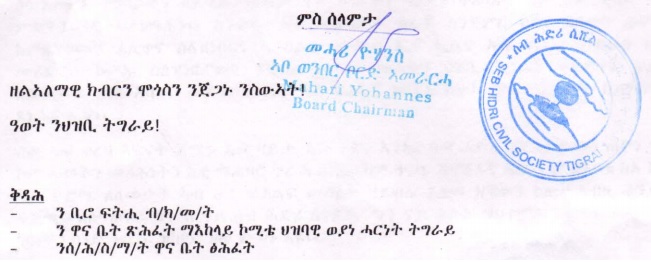 ምስ ሰላምታ
መሓሪ ዮሃንስ
ኣቦ ወንበር ቦርድ ኣመራርሓ
Mehari Yohannes
Board Chairman
ስብ ሕድሪ ሲቪል
SEB HIDRI CIVIL SOCIETY TIGRAI
ዘልኣለማዊ ክብርን ሞጎስን ንጀጋኑ ንስውኣት!
ዓወት ንህዝቢ ትግራይ!
ቅዳሕ
- ን ቢሮ ፍትሒ ብ/ክ/መ/ት
- ን ዋና ቤት ጽሕፈት ማእከላይ ኮሚቴ ህዝባዊ ወያነ ሓርነት ትግራይ
- ንሰ/ሕ/ስ/ማ/ት ዋና ቤት ፅሕፈት